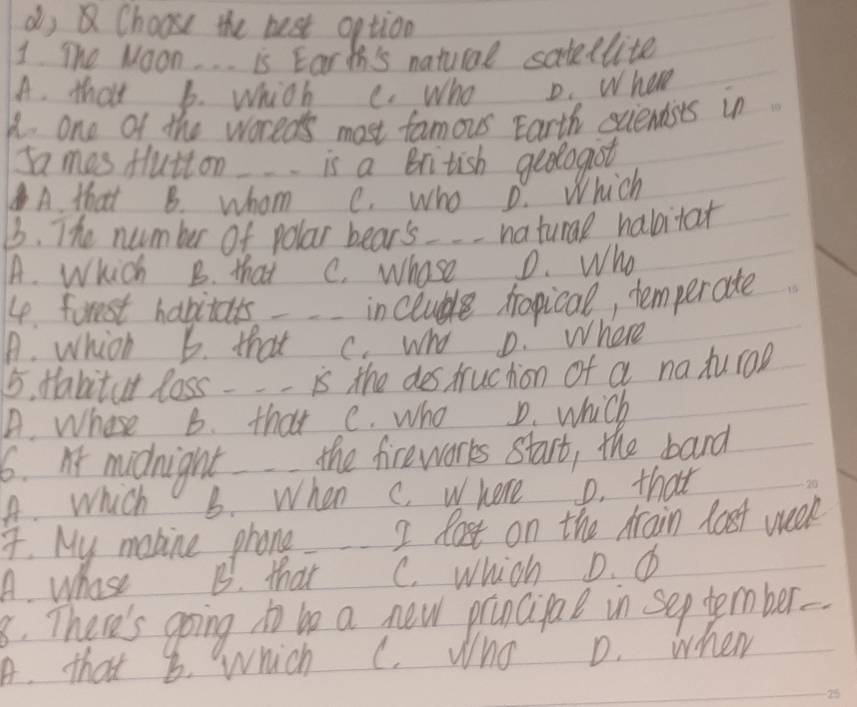 2, Q Choose the best option
1. The Moon... is Earth's natural satellite
A. that B. which C. Who D. When
2. one of the woread's most famous Earth scientists in
James Hutton - - - - is a British geologist
A. that B. whom C. who D. Which
3. The number of polar bear's - - - natural habitat
A. Which B. that C. whose D. Who
4. forest habitats - - - include tropical, temperate
A. which B. that C. who D. Where
5. Habitat loss - - - is the destruction of a natural
A. Whose B. that C. who D. which
6. At midnight - - - the fireworks start, the band
A. which B. When C. Where D. that
7. My mobine phone - - - I lost on the train last week
A. Whose B. that C. which D. Ø
8. There's going to be a new principal in september...
A. that B. Which C. Who D. when
10
15
20
25